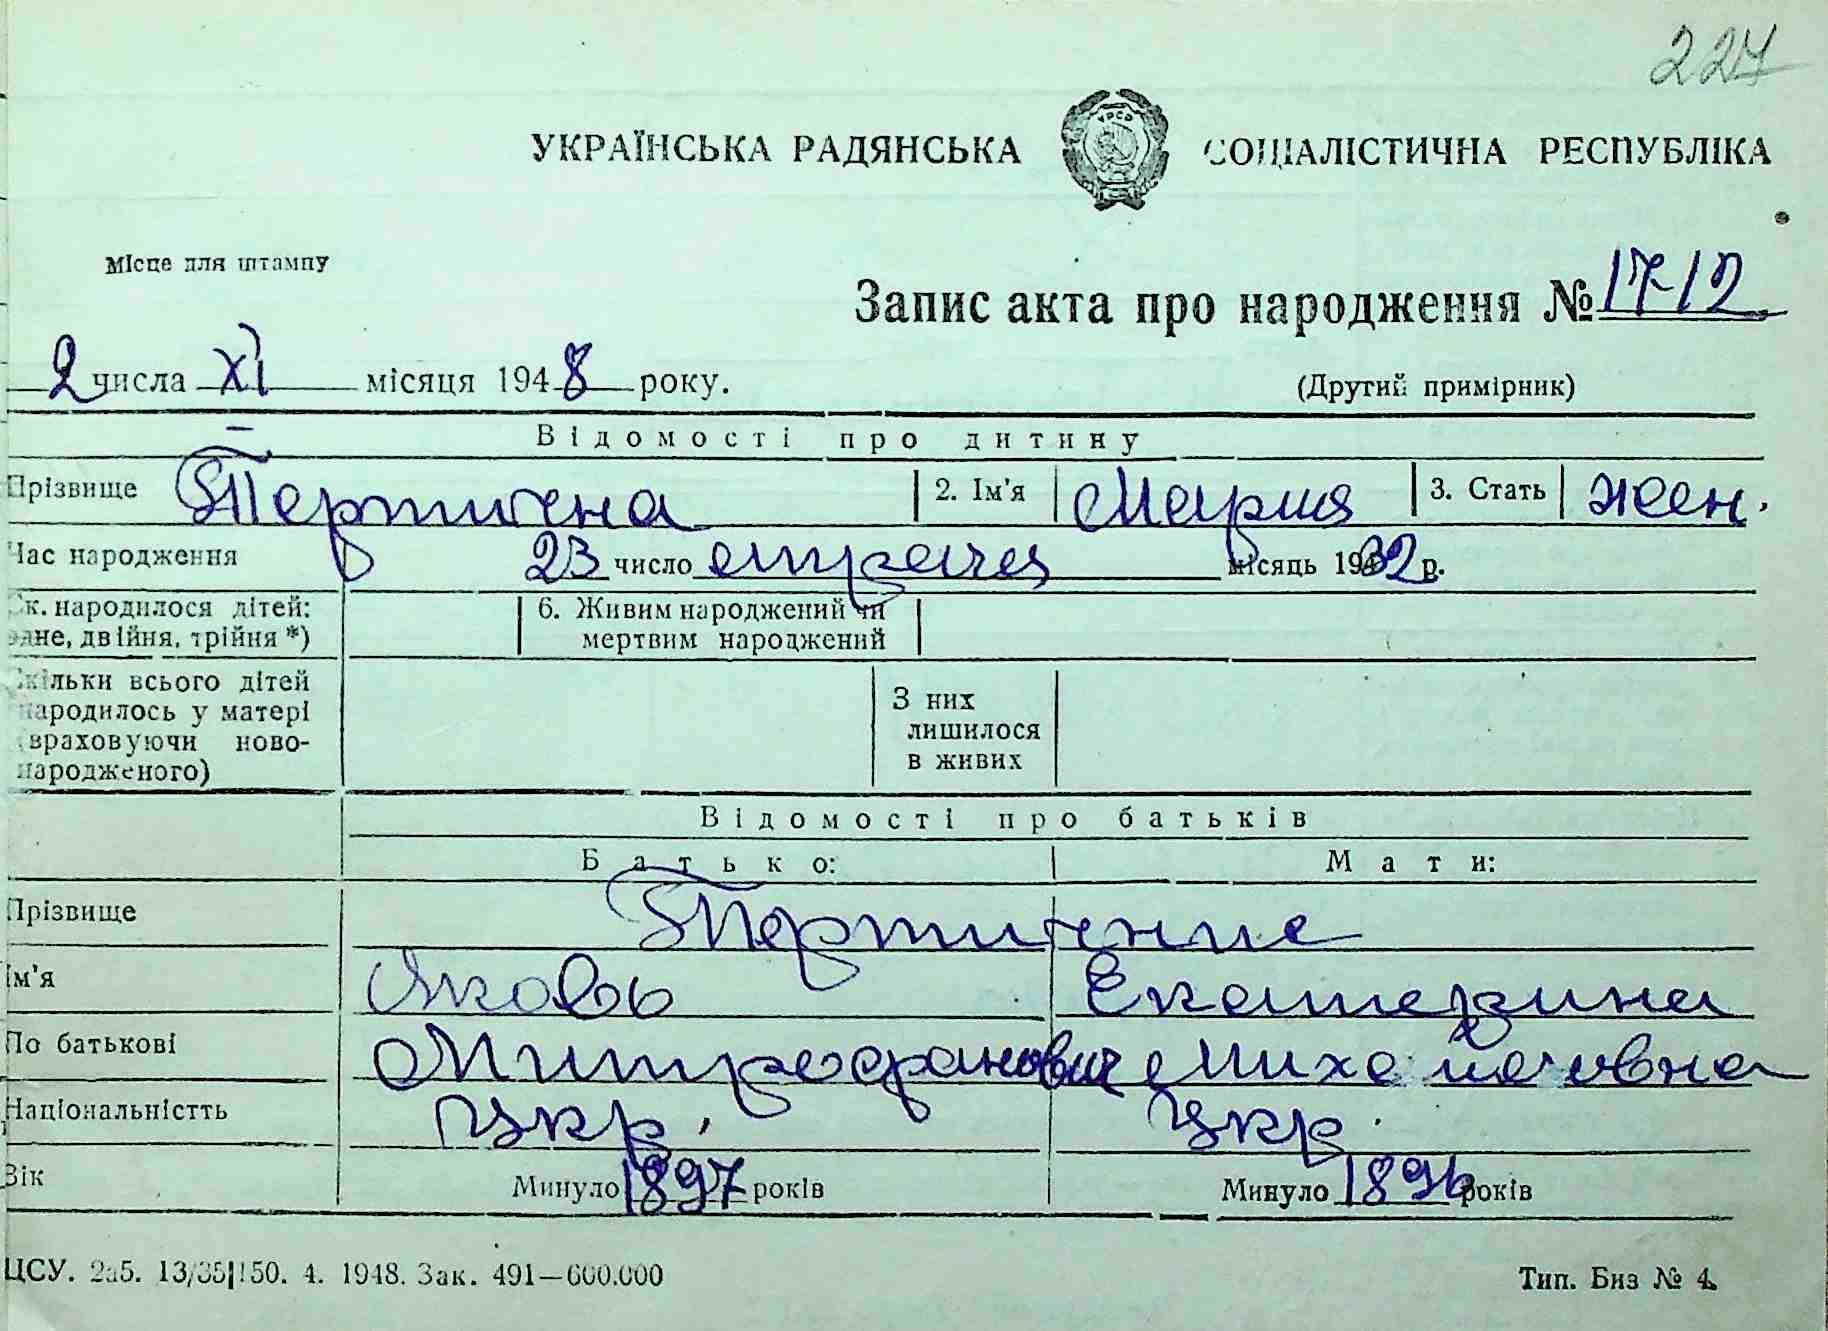 227
УКРАЇНСЬКА РАДЯНСЬКА СОЦІАЛІСТИЧНА РЕСПУБЛІКА
Місце для штампу
Запис акта про народження № 1712
2 числа XI місяця 1948 року.
(Другий примірник)
Відомості про дитину
Прізвище 2. Ім'я Мария 3. Стать жен.
Час народження 23 число місяць 1932 р.
Ск. народилося дітей: 6. Живим народжений чи
одне, двійня, трійня *) мертвим народжений
Скільки всього дітей З них
народилось у матері лишилося
(враховуючи ново- в живих
народженого)
Відомості про батьків
Батько: Мати:
Прізвище
Ім'я Яковь Екатерина
По батькові Митрофанович Михайловна
Національністть Укр. Укр.
Вік Минуло 1897 років Минуло 1896 років
ЦСУ. 2а5. 13/35|150. 4. 1948. Зак. 491—600.000
Тип. Биз № 4.